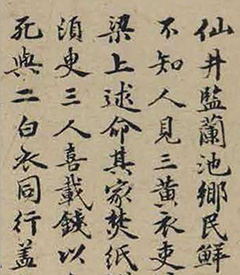 仙井監蘭池鄉民鮮
不知人見三黄衣吏
梁上逑命其家焚紙
湏臾三人喜載錢以
死與二白衣同行盖